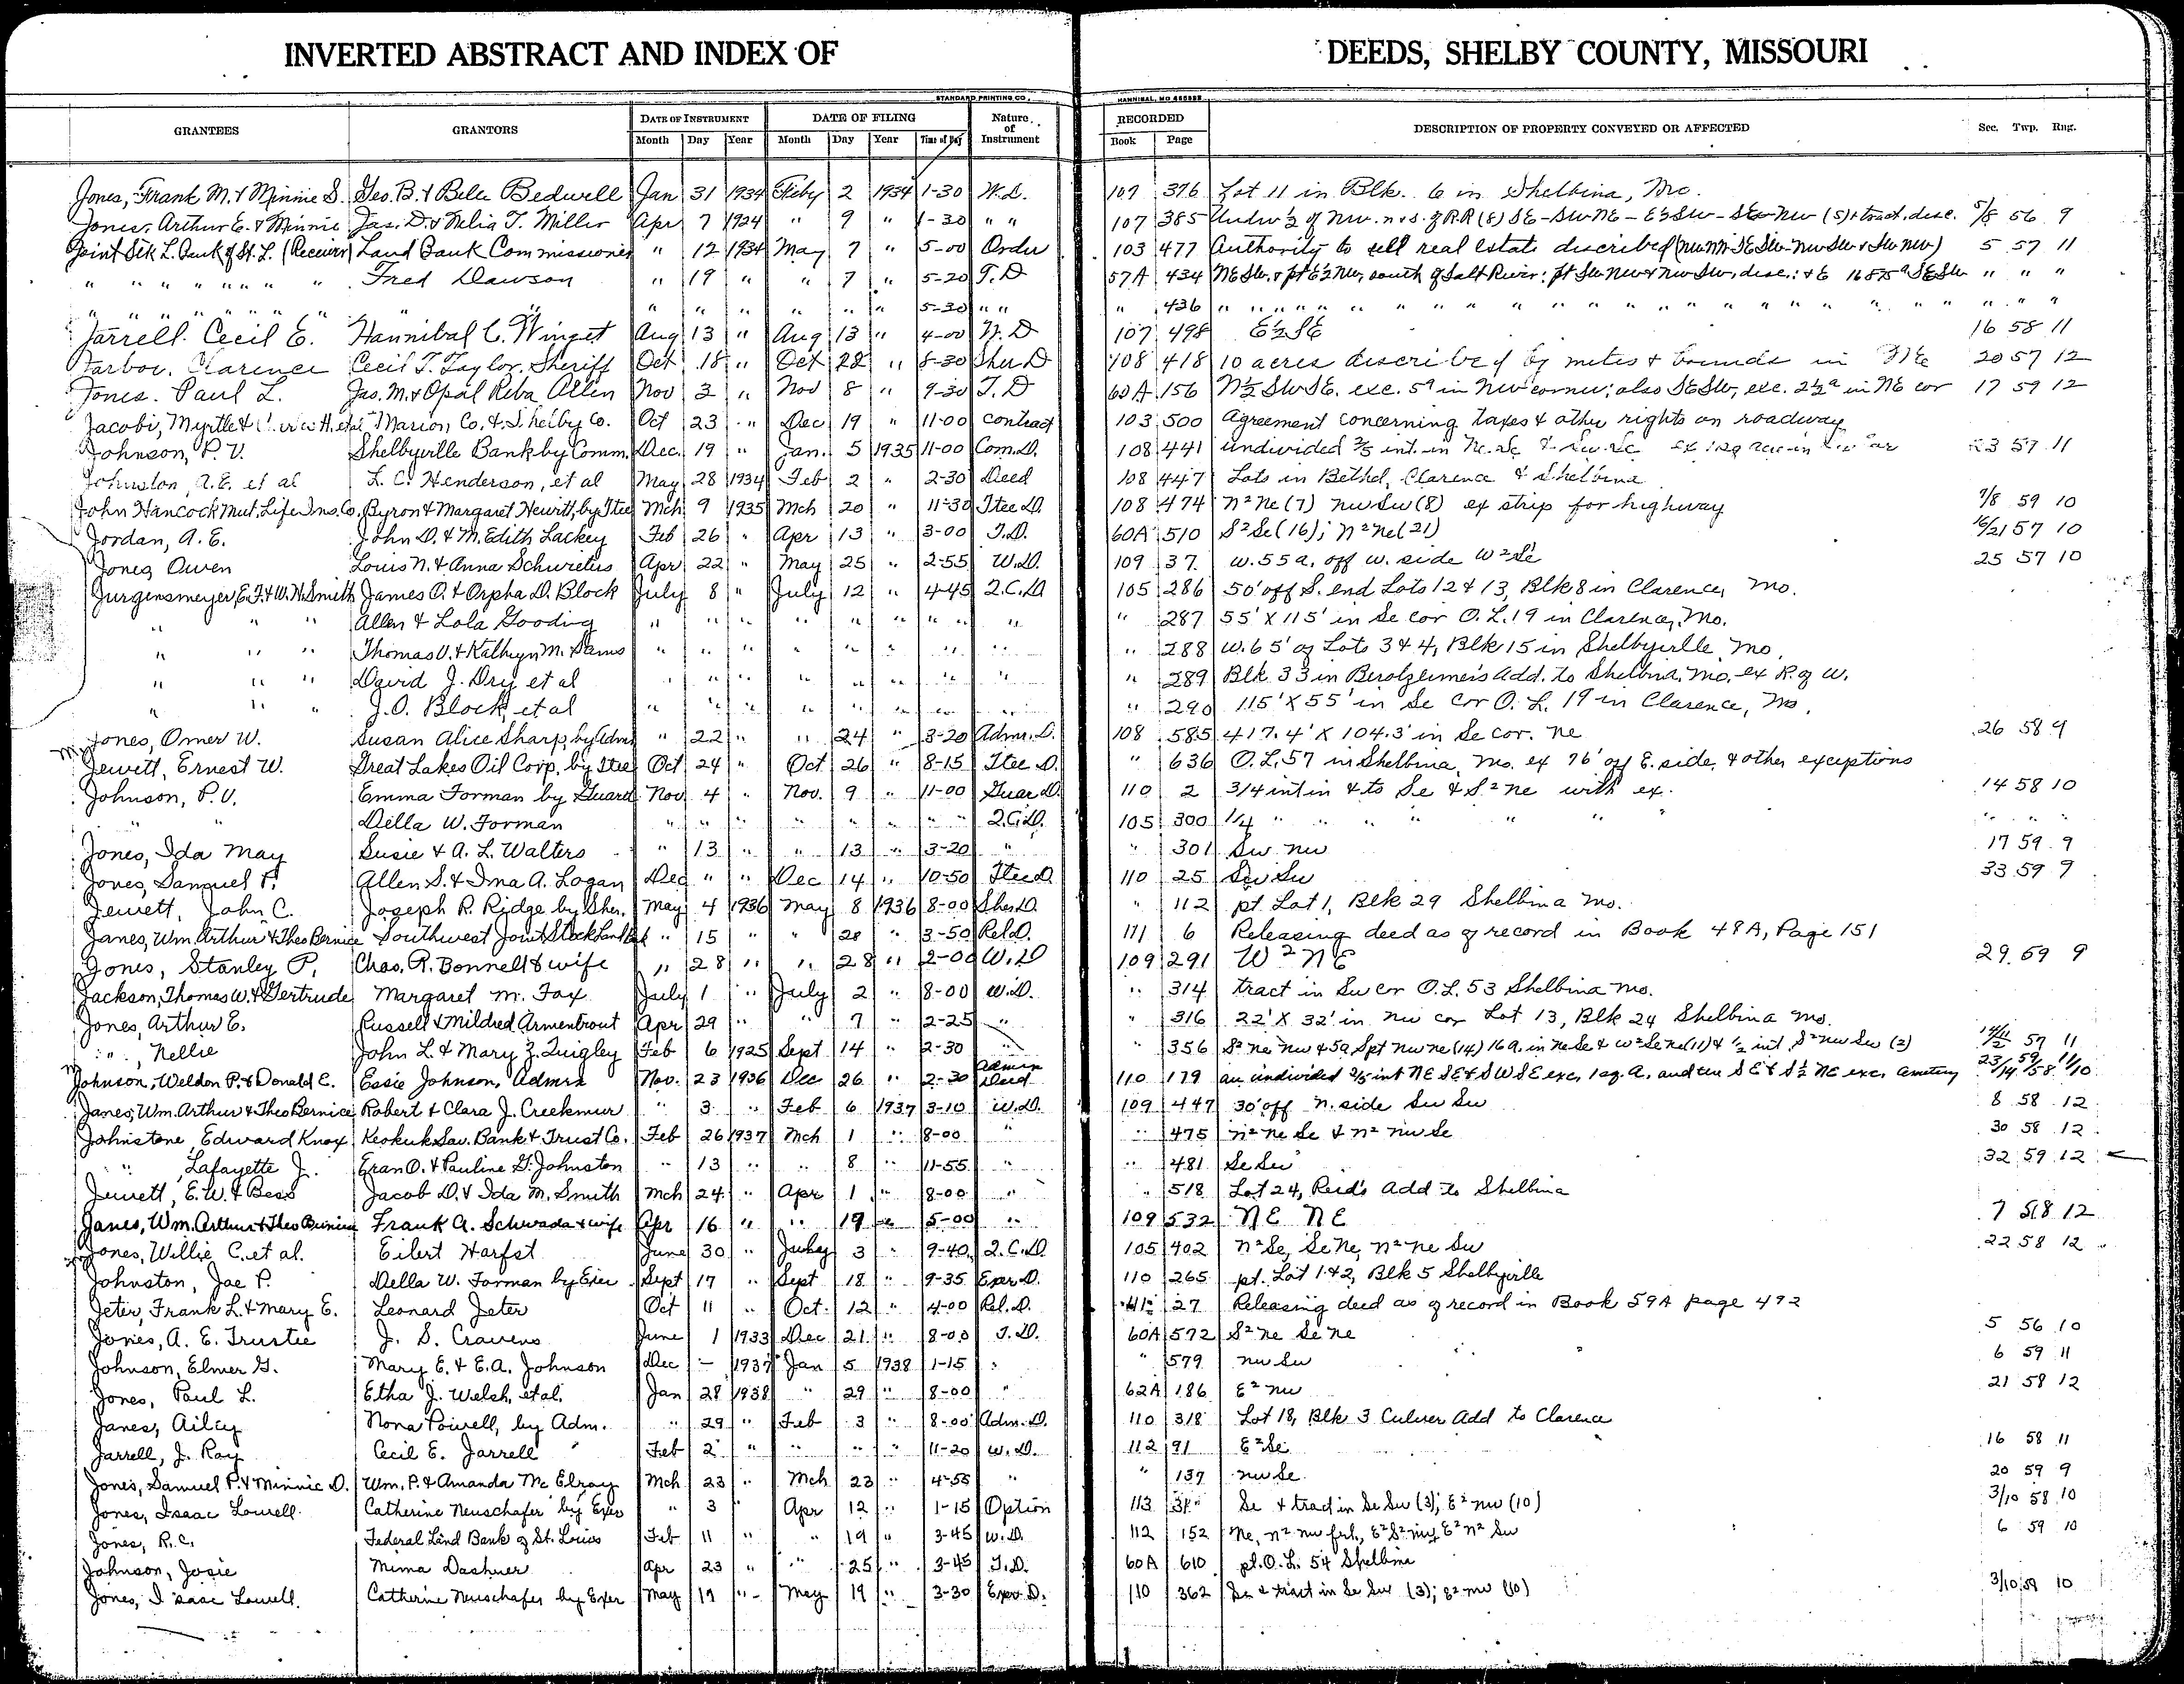 INVERTED ABSTRACT AND INDEX OF DEEDS, SHELBY COUNTY, MISSOURI
STANDARD PRINTING CO., HANNIBAL, MO
GRANTEES GRANTORS DATE OF INSTRUMENT DATE OF FILING Nature of Instrument RECORDED DESCRIPTION OF PROPERTY CONVEYED OR AFFECTED Sec. Twp. Rng.
Month Day Year Month Day Year Time of Day Book Page
Jones, Frank M. & Minnie S. Geo. B. & Belle Bedwell Jan 31 1934 Feby 2 1934 1-30 W.D. 107 376 Lot 11 in Blk. 6 in Shelbina, Mo.
Jones, Arthur E. & Minnie Jas. D. & Melia T. Miller Apr 7 1924 " 9 " 1-30 " " 107 385 Undiv ½ of NW. n. & s. of RR (8) SE-SWNE-E½SW-SENW (5) & tract, desc. 5/8 56 9
Joint Stk L. Bank of St. L. (Receiver) Land Bank Commissioner " 12 1934 May 7 " 5-00 Order 103 477 Authority to sell real estate described 5 57 11
" " " " " " " Fred Dawson " 19 " " 7 " 5-20 T.D 57A 434 NESW. & pt E½NW, south of Salt River: pt SWNW & NWSW, desc.: & E 16.875 a SESW " " "
" " " " " " " " " " " " " " 5-30 " " " 436 " " " " " " " " " " " "
Jarrell. Cecil E. Hannibal C. Winget Aug 13 " Aug 13 " 4-00 W.D 107 498 E½SE 16 58 11
Jarboe, Clarence Cecil T. Taylor, Sheriff Oct 18 " Oct 22 " 8-30 Sher D 108 418 10 acres described by metes & bounds in NE 20 57 12
Jones. Paul L. Jas. M. & Opal Reba Allen Nov 3 " Nov 8 " 9-30 T.D 60A 156 N½SWSE. exc. 5a in NW corner; also SESW, exc. 2½a in NE cor 17 59 12
Jacobi, Myrtle & et al Marion Co. & Shelby Co. Oct 23 " Dec 19 " 11-00 contract 103 500 Agreement concerning taxes & other rights on roadway
Johnson, P. V. Shelbyville Bank by Comm. Dec. 19 " Jan. 5 1935 11-00 Com. D. 108 441 undivided ⅖ int. in Ne. Se & Sw. Se ex 1 sq acre in 23 57 11
Johnston, A. E. et al L. C. Henderson, et al May 28 1934 Feb 2 " 2-30 Deed 108 447 Lots in Bethel, Clarence & Shelbina
John Hancock Mut. Life Ins. Co. Byron & Margaret Hewitt, by Stee Mch 9 1935 Mch 20 " 11-30 Stee D. 108 474 N² Ne (7) NwSw (8) ex strip for highway 7/8 59 10
Jordan, A. E. John D. & M. Edith Lackey Feb 26 " Apr 13 " 3-00 T.D. 60A 510 S² Se (16); N² Ne (21) 16/21 57 10
Jones Owen Louis N. & Anna Schwielus Apr 22 " May 25 " 2-55 W.D. 109 37 W. 55 a. off W. side W² Se 25 57 10
Jurgensmeyer, E. F. & W. H. Smith James O. & Orpha D. Block July 8 " July 12 " 4-45 Q.C.D 105 286 50' off S. end Lots 12 & 13, Blk 8 in Clarence, Mo.
" " " Allen & Lola Gooding " " " " " " " " " 287 55' X 115' in Se cor O. L. 19 in Clarence, Mo.
" " " Thomas V. & Kathryn M. Sams " " " " " " " " " 288 W. 65' of Lots 3 & 4, Blk 15 in Shelbyville, Mo.
" " " David J. Dry et al " " " " " " " " " 289 Blk 33 in Berolzeimer's Add. to Shelbina, Mo. ex R. of W.
" " " J. O. Block, et al " " " " " " " " " 290 115' X 55' in Se cor O. L. 19 in Clarence, Mo.
Jones, Omer W. Susan Alice Sharp, by Adms " 22 " " 24 " 3-20 Admr. D. 108 585 417.4' X 104.3' in Se cor. Ne 26 58 9
Jewett, Ernest W. Great Lakes Oil Corp. by Stee Oct 24 " Oct 26 " 8-15 Stee D. " 636 O. L. 57 in Shelbina, Mo. ex 76' off E. side, & other exceptions
Johnson, P. V. Emma Forman by Guard Nov 4 " Nov. 9 " 11-00 Guar D. 110 2 3/4 int in & to Se & S² Ne with ex. 14 58 10
" " Della W. Forman " " " " " " " " Q.C.D. 105 300 1/4 " " " " " " " " "
Jones, Ida May Susie & A. L. Walters " 13 " " 13 " 3-20 " " 301 Sw Nw 17 59 9
Jones, Samuel P. Allen S. & Ima A. Logan Dec " " Dec 14 " 10-50 Stee D. 110 25 Sw Sw 33 59 9
Jewett, John C. Joseph R. Ridge by Sher. May 4 1936 May 8 1936 8-00 Sher D. " 112 pt. Lot 1, Blk 29 Shelbina Mo.
Janes, Wm. Arthur & Theo Bernice Southwest Joint Stock Land Bk " 15 " " 28 " 3-50 Rel D. 111 6 Releasing deed as of record in Book 48A, Page 151
Jones, Stanley P. Chas. R. Bonnell & wife " 28 " " 28 " 2-00 W.D 109 291 W² NE 29 59 9
Jackson, Thomas W. & Gertrude Margaret M. Fox July 1 " July 2 " 8-00 W.D. " 314 tract in Sw cor O. L. 53 Shelbina Mo.
Jones, Arthur E. Russell & Mildred Armentrout Apr 29 " " 7 " 2-25 " " 316 22' X 32' in Nw cor Lot 13, Blk 24 Shelbina Mo.
" , Nellie John L. & Mary Z. Quigley Feb 6 1925 Sept 14 " 2-30 " " 356 S² Ne Nw & 5a Spt Nw Ne (14) 16 a. in Ne Se & W² Se Ne (11) & ½ int S² Nw Sw (2) 57 11
Johnson, Weldon P. & Donald E. Essie Johnson, Admrx Nov. 23 1936 Dec 26 " 2-30 Admin Deed 110 179 an undivided ⅖ int NE SE & SW SE exc. 1 sq. A. and the SE & S½ NE exc. cemetery 23/14 57/58 11/10
Janes, Wm. Arthur & Theo Bernice Robert & Clara J. Creekmur " 3 " Feb 6 1937 3-10 W.D. 109 447 30' off N. side Sw Sw 8 58 12
Johnstone, Edward Knox Keokuk Sav. Bank & Trust Co. Feb 26 1937 Mch 1 " 8-00 " " 475 N² Ne Se & N² Nw Se 30 58 12
" , Lafayette J. Eran O. & Pauline G. Johnston " 13 " " 8 " 11-55 " " 481 Se Sw 32 59 12
Jewett, E. W. & Bess Jacob D. & Ida M. Smith Mch 24 " Apr 1 " 8-00 " " 518 Lot 24, Reid's Add to Shelbina
Janes, Wm. Arthur & Theo Bernice Frank A. Schwada & wife Apr 16 " " 19 " 5-00 " 109 532 NE NE 7 58 12
Jones, Willie C. et al. Eilert Harfst June 30 " July 3 " 9-40 Q.C.D. 105 402 N² Se, Se Ne, N² Ne Sw 22 58 12
Johnston, Jae P. Della W. Forman by Exec Sept 17 " Sept 18 " 9-35 Exec D. 110 265 pt. Lot 1 & 2, Blk 5 Shelbyville
Jeter, Frank L. & Mary E. Leonard Jeter Oct 11 " Oct. 12 " 4-00 Rel. D. 111 27 Releasing deed as of record in Book 59A page 492
Jones, A. E. Trustee J. S. Cravens June 1 1933 Dec 21 " 8-00 T.D. 60A 572 S² Ne Se Ne 5 56 10
Johnson, Elmer G. Mary E. & E. A. Johnson Dec - 1937 Jan 5 1938 1-15 " " 579 Nw Sw 6 59 11
Jones, Paul L. Etha J. Welch, et al. Jan 28 1938 " 29 " 8-00 " 62A 186 E² Nw 21 58 12
Janes, Ailcy Nona Powell, by Adm. " 29 " Feb 3 " 8-00 Adm. D. 110 318 Lot 18, Blk 3 Culver Add to Clarence
Jarrell, J. Ray Cecil E. Jarrell Feb 2 " " " " 11-20 W.D. 112 91 E² Se 16 58 11
Jones, Samuel P. & Minnie D. Wm. P. & Amanda McElroy Mch 23 " Mch 23 " 4-55 " " 137 Nw Se 20 59 9
Jones, Isaac Lowell Catherine Neuschafer by Exec " 3 " Apr 12 " 1-15 Option 113 31 Se & tract in Se Sw (3); E² Nw (10) 3/10 58 10
Jones, R. C. Federal Land Bank of St. Louis Feb 11 " " 19 " 3-45 W.D. 112 152 Ne, N² Nw frl, E² S² Nw, E² N² Sw 6 59 10
Johnson, Josie Mima Dashner Apr 23 " " 25 " 3-45 T.D. 60A 610 pt. O. L. 54 Shelbina
Jones, Isaac Lowell. Catherine Neuschafer by Exec May 19 " May 19 " 3-30 Exec D. 110 362 Se & tract in Se Sw (3); E² Nw (10) 3/10 59 10